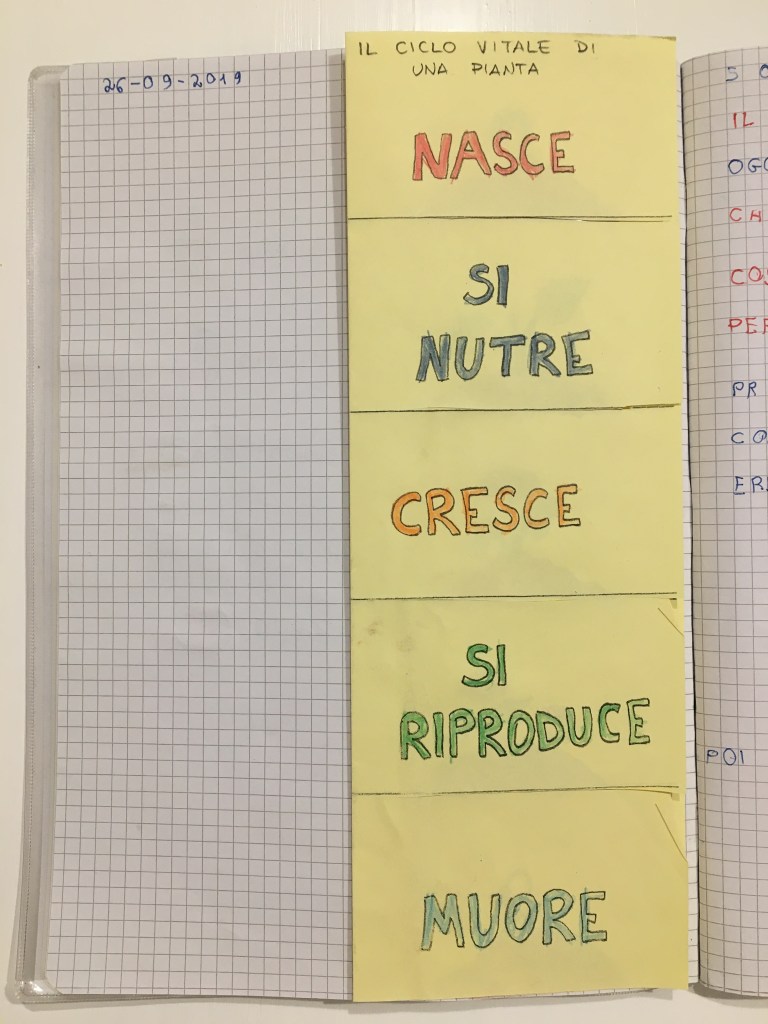 26-09-2019
IL CICLO VITALE DI
UNA PIANTA
NASCE
SI
NUTRE
CRESCE
SI
RIPRODUCE
MUORE
IL
POI